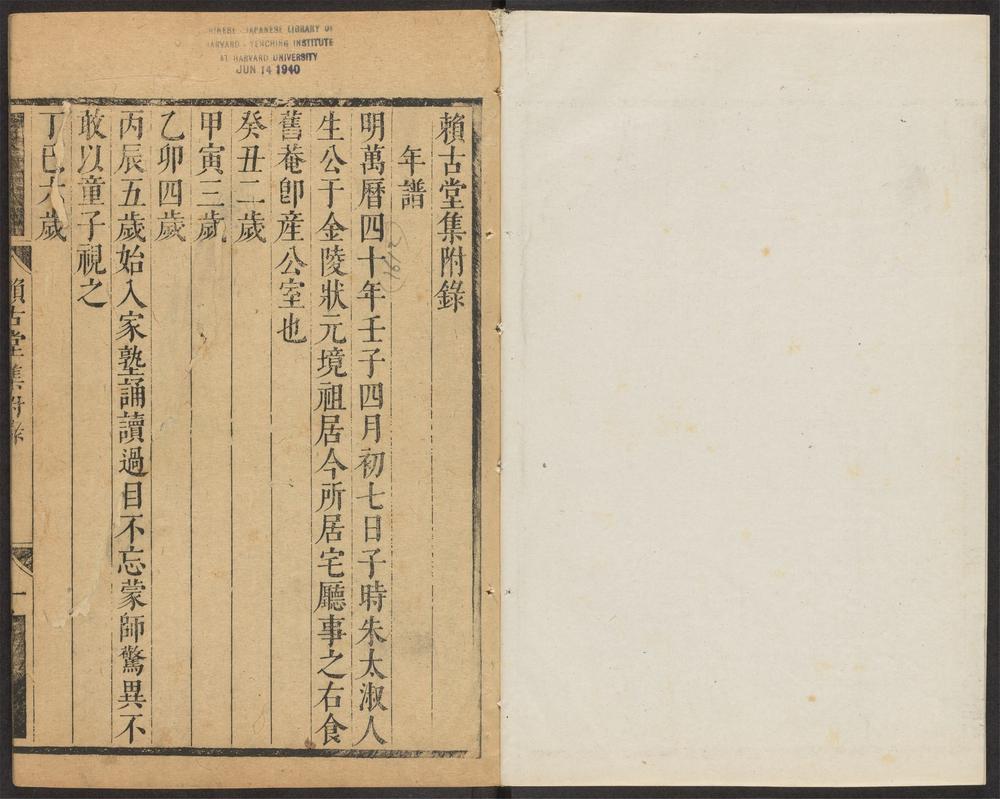 CHINESE - JAPANESE LIBRARY OF
HARVARD - YENCHING INSTITUTE
AT HARVARD UNIVERSITY
JUN 14 1940
賴古堂集附錄
年譜
明萬曆四十年壬子四月初七日子時朱太淑人
生公于金陵狀元境祖居今所居宅廳事之右食
舊菴卽產公室也
癸丑二歲
甲寅三歲
乙卯四歲
丙辰五歲始入家塾誦讀過目不忘蒙師驚異不
敢以童子視之
丁巳六歲
賴古堂集附錄
一